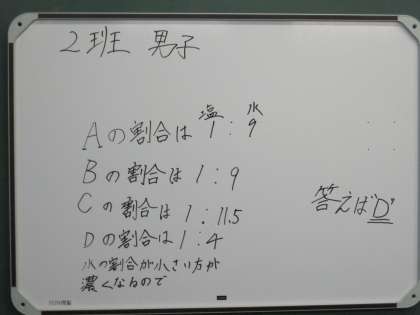 2班 男子
塩 水
Aの割合は 1:9
Bの割合は 1:9
Cの割合は 1:11.5
Dの割合は 1:4
水の割合が小さい方が
濃くなるので
答えは"D"